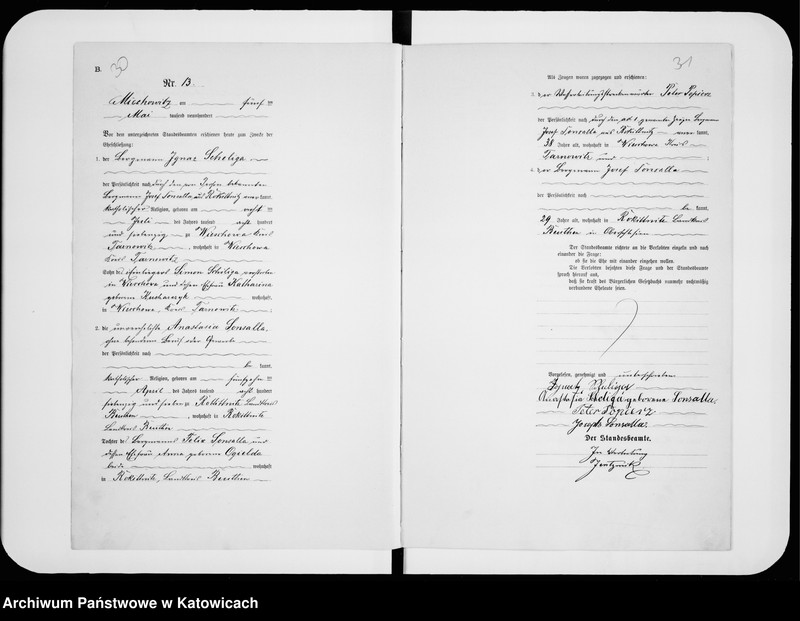 B.
30
Nr. 13
Miechowitz am fünf ten
Mai tausend neunhundert
Vor dem unterzeichneten Standesbeamten erschienen heute zum Zwecke der
Eheschließung:
1. der Bergmann Ignac Scholiga
der Persönlichkeit nach durch den von Person bekannten
Bergmann Josef Sonsalla aus Rokittnitz kannt,
katholischer Religion, geboren am acht ten
Juli des Jahres tausend acht hundert
und siebenzig zu Wieschowa Kreis
Tarnowitz, wohnhaft in Wieschowa
Kreis Tarnowitz
Sohn des Simon Scholiga verstorben
in Wieschowa und dessen Ehefrau Katharina
geborene Kucharczyk wohnhaft
in Wieschowa, Kreis Tarnowitz;
2. die unverehelichte Anastasia Sonsalla,
ohne besonderen Beruf oder Gewerbe
der Persönlichkeit nach
be kannt,
katholischer Religion, geboren am fünfzehn ten
April des Jahres tausend acht hundert
siebenzig und sieben zu Rokittnitz Landkreis
Beuthen, wohnhaft in Rokittnitz
Landkreis Beuthen
Tochter des Bergmanns Felix Sonsalla und
dessen Ehefrau Anna geborene Ogielda
beide wohnhaft
in Rokittnitz, Landkreis Beuthen
31
Als Zeugen waren zugezogen und erschienen:
3. der Peter Popierz
der Persönlichkeit nach durch den ad. 1. genannten Zeugen Bergmann
Josef Sonsalla aus Rokittnitz kannt,
38 Jahre alt, wohnhaft in Wieschowa Kreis
Tarnowitz und;
4. der Bergmann Josef Sonsalla
der Persönlichkeit nach
be kannt,
29 Jahre alt, wohnhaft in Rokittnitz Landkreis
Beuthen in Oberschlesien
Der Standesbeamte richtete an die Verlobten einzeln und nach
einander die Frage:
ob sie die Ehe mit einander eingehen wollen.
Die Verlobten bejahten diese Frage und der Standesbeamte
sprach hierauf aus,
daß sie kraft des Bürgerlichen Gesetzbuchs nunmehr rechtmäßig
verbundene Eheleute seien.
Vorgelesen, genehmigt und unterschrieben
Ignatz Scholiga
Anastasia Scholiga geborene Sonsalla
Peter Popierz
Joseph Sonsalla.
Der Standesbeamte.
In Vertretung
Archiwum Państwowe w Katowicach